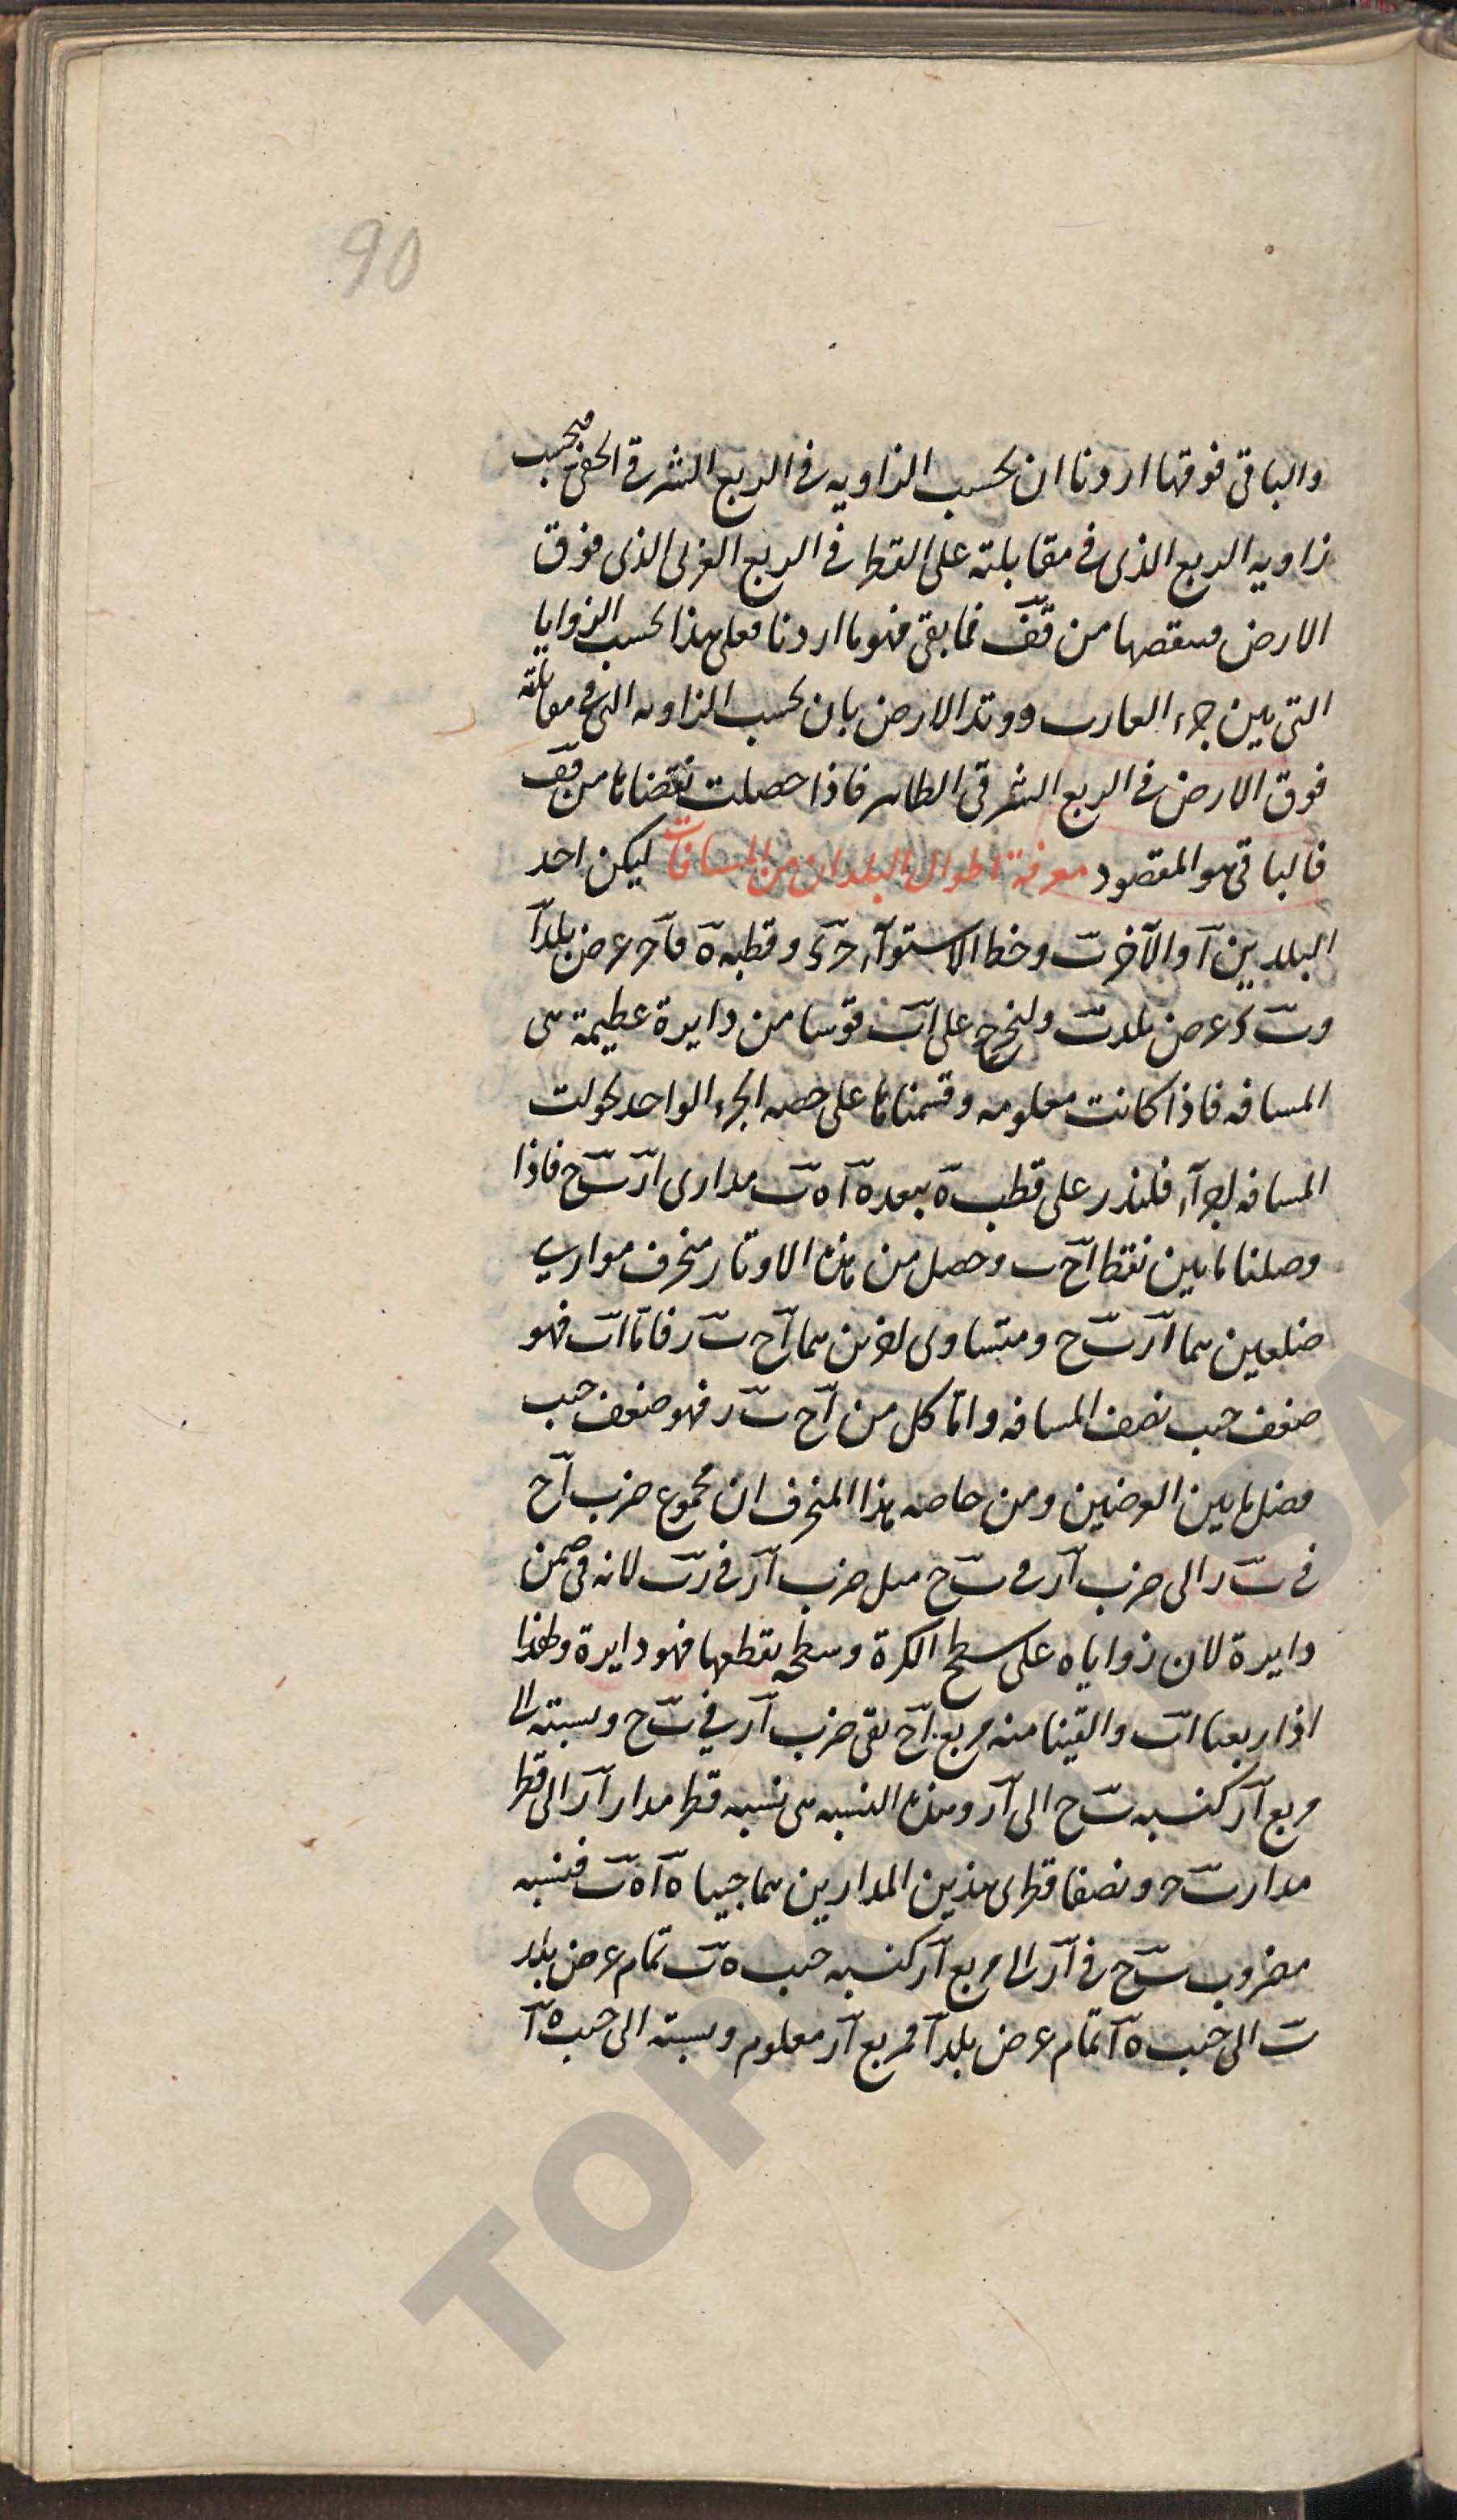 90
والباقى فوقها اردنا ان نحسب الزاويه فى الربع الشرقى الخفى فنحسب
زاويه الربع الذى فى مقابلته على القطر فى الربع الغربى الذى فوق
الارض وننقصها من قف فما بقى فهو ما اردنا فعلى هذا نحسب الزوايا
التى بين جزء الغارب ووتد الارض بان نحسب الزاويه التى فى مقابلته
فوق الارض فى الربع الشرقى الظاهر فاذا حصلت نقصناها من قف
فالباقى هو المقصود معرفة اطوال البلدان من المسافات ليكن احد
البلدين آ والآخر ب وخط الاستوآء حرى وقطبه ه فآحر عرض بلد آ
وب ى عرض بلد ب وليخرج على اب قوسا من دايرة عظيمة هى
المسافه فاذا كانت معلومه وقسمناها على حصه الجزء الواحد تحولت
المسافه اجزآء فلندر على قطب ه ببعد ه آ ه ب مدارى ار ب ح فاذا
وصلنا ما بين نقط اح ب وحصل من هذه الاوتار منحرف موازى
ضلعين هما ار ب ح ومتساوى اخرين هما اح ب ر فاما اب فهو
ضعف جيب نصف المسافه واما كل من اح ب ر فهو ضعف جيب
فضل ما بين العرضين ومن خاصه هذا المنحرف ان مجموع ضرب اح
فى ب ر الى ضرب ار فى ب ح مثل ضرب ار فى رب لانه فى ضمن
دايرة لان زواياه على سطح الكرة وسطحه يقطعها فهو دايرة ولهذا
اذا ربعنا اب والقينا منه مربع اح بقى ضرب ار فى ب ح ونسبته الى
مربع ار كنسبه ب ح الى ار وهذه النسبه هى نسبه قطر مدار ار الى قطر
مدار ب ح ونصفا قطرى هذين المدارين هما جيبا ه آ ه ب فنسبه
مضروب ب ح فى ار الى مربع ار كنسبه جيب ه ب تمام عرض بلد
ب الى جيب ه آ تمام عرض بلد آ فمربع ار معلوم ونسبته الى جيب ه آ